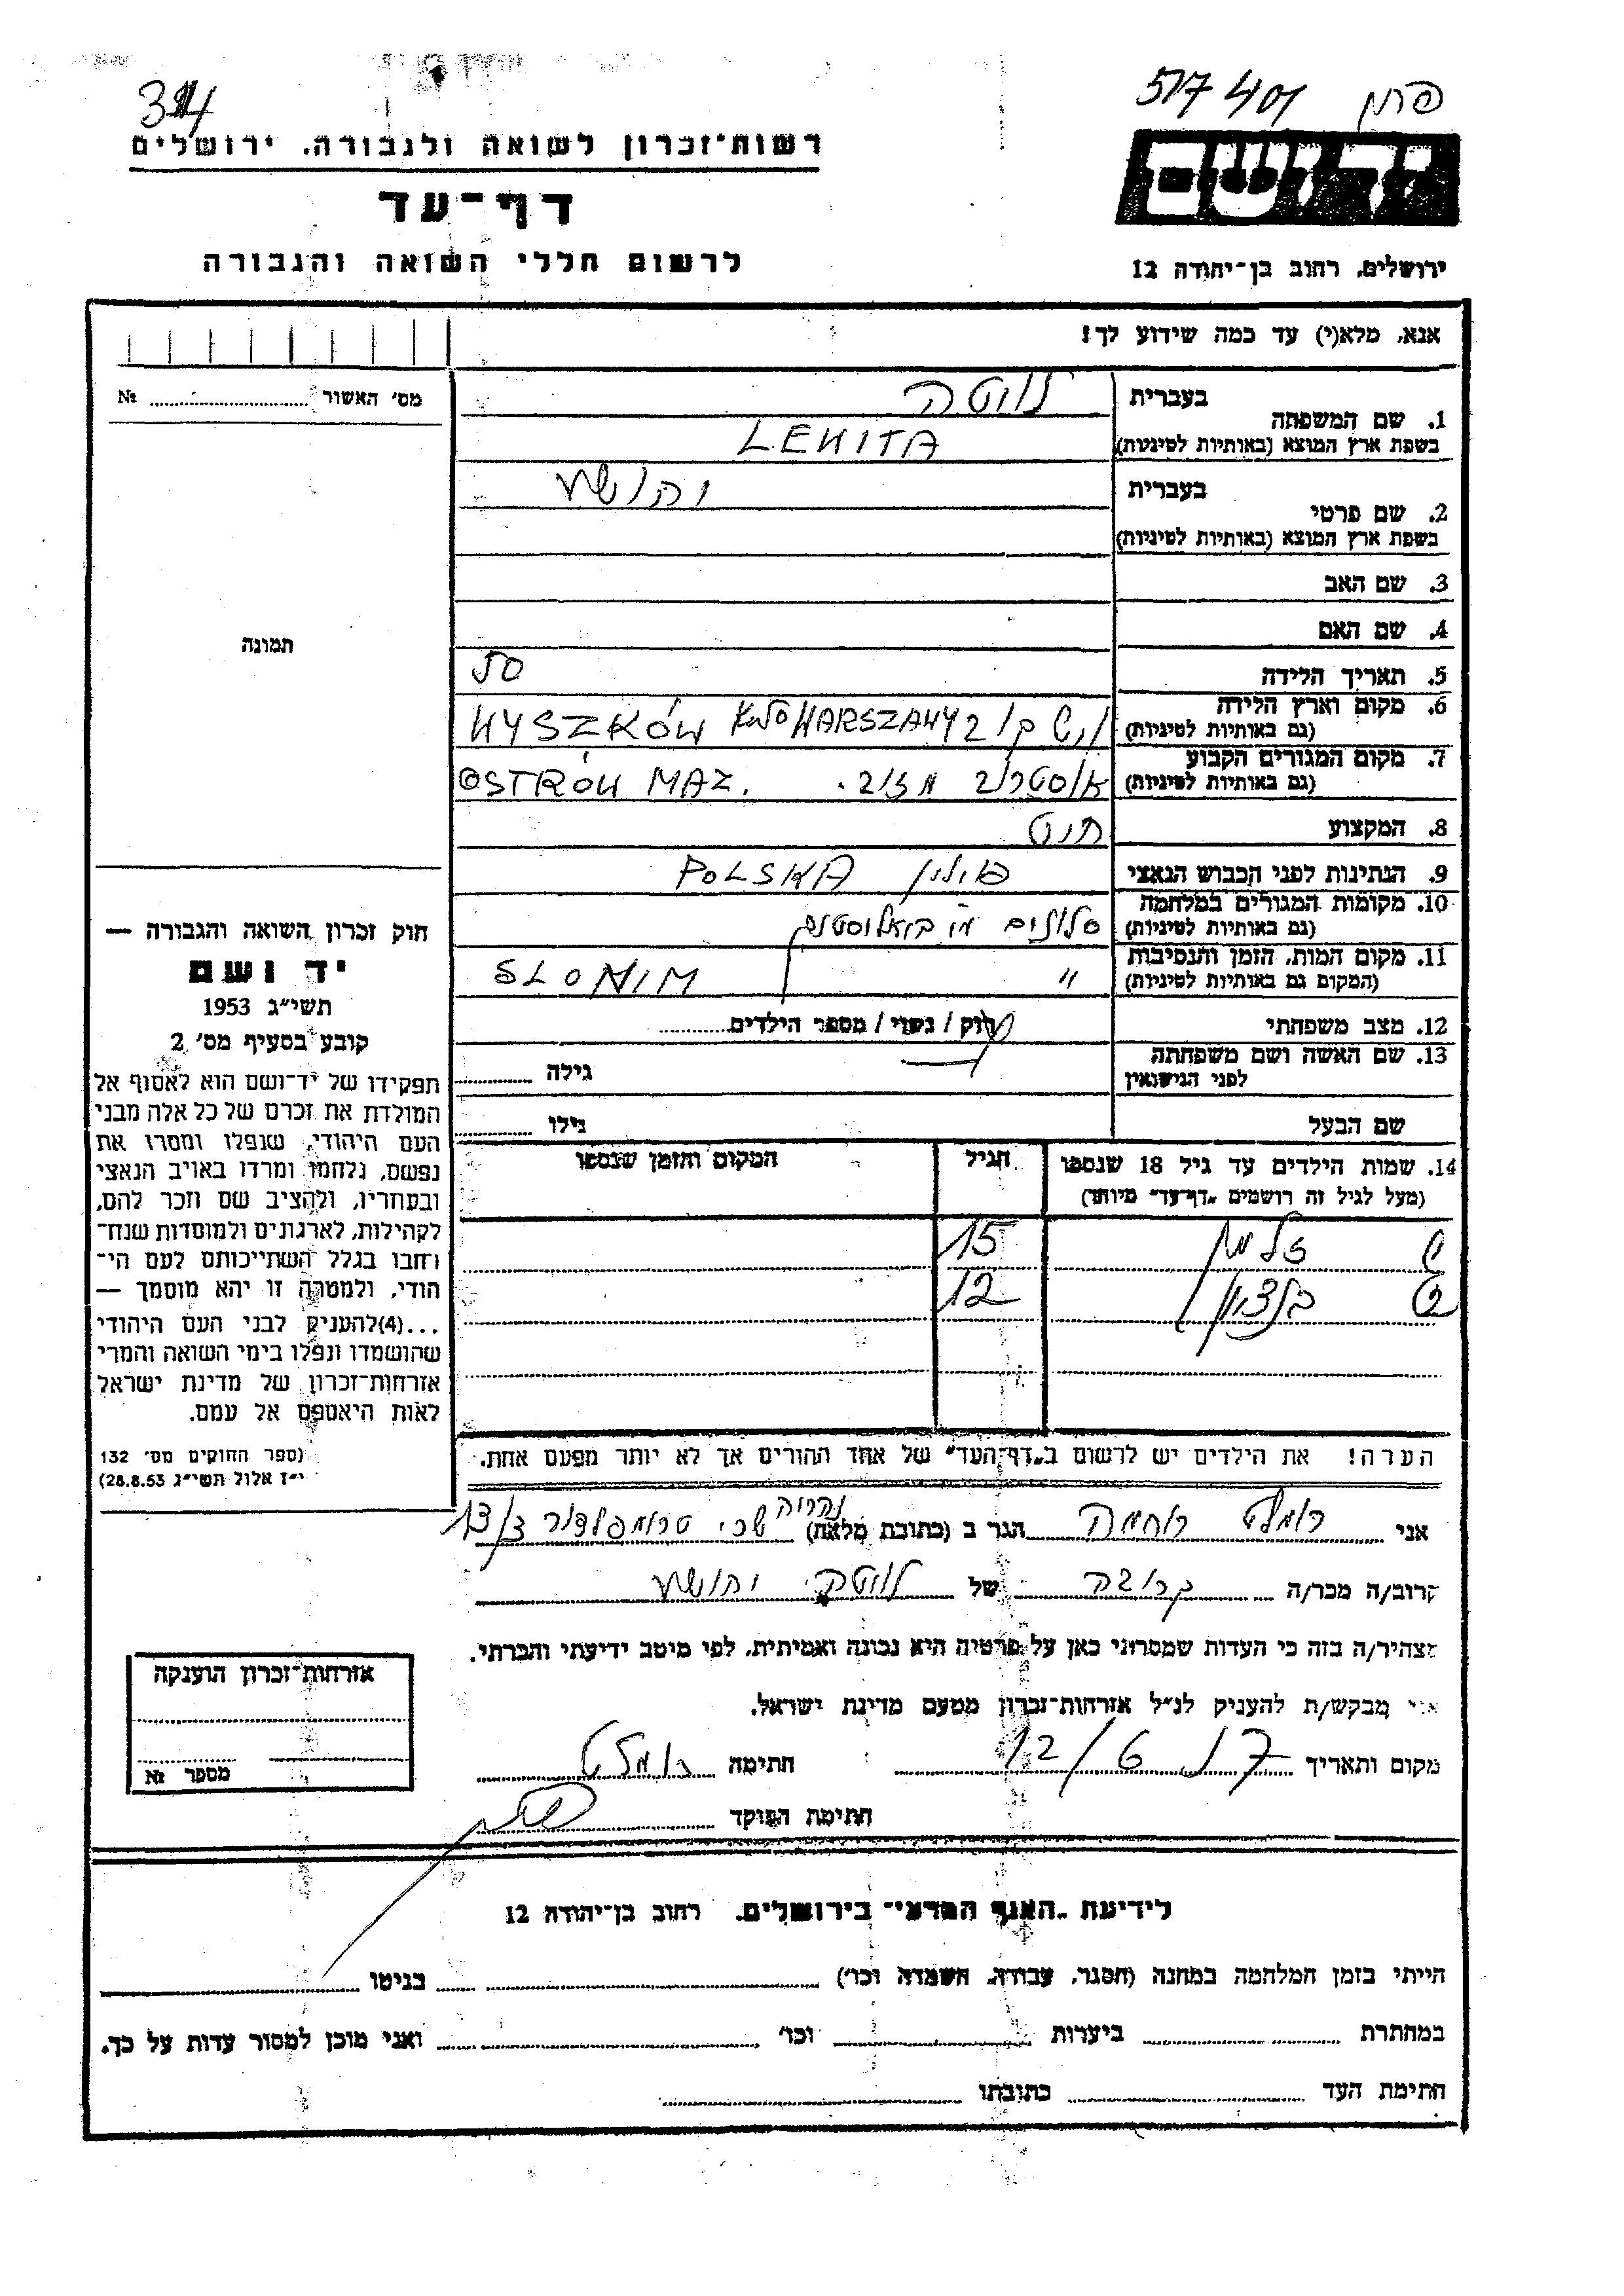 314
517401
רשות־זכרון לשואה ולגבורה. ירושלים
דף־עד
לרשום חללי השואה והגבורה
יד ושם
ירושלים, רחוב בן־יהודה 12
אנא, מלא(י) עד כמה שידוע לך!
מס׳ האשור № 
1. שם המשפחה בעברית לויטה
בשפת ארץ המוצא (באותיות לטיניות) LEWITA
2. שם פרטי בעברית יהושע
בשפת ארץ המוצא (באותיות לטיניות)
3. שם האב
4. שם האם
תמונה
5. תאריך הלידה 50
6. מקום וארץ הלידה
(גם באותיות לטיניות) WYSZKÓW KOŁO WARSZAWY
7. מקום המגורים הקבוע
(גם באותיות לטיניות) אוסטרוב מזוב. OSTRÓW MAZ.
8. המקצוע
9. הנתינות לפני הכבוש הנאצי פולין POLSKA
10. מקומות המגורים במלחמה
(גם באותיות לטיניות) סלונים
11. מקום המות, הזמן והנסיבות
(המקום גם באותיות לטיניות) " SLONIM
12. מצב משפחתי רוק / נשוי / מספר הילדים
13. שם האשה ושם משפחתה
לפני הנישואין גילה
שם הבעל גילו
14. שמות הילדים עד גיל 18 שנספו הגיל המקום והזמן שנספו
(מעל לגיל זה רושמים „דף־עד" מיוחד)
1) זלמן 15
2) בן ציון 12
הערה! את הילדים יש לרשום ב„דף־העד" של אחד ההורים אך לא יותר מפעם אחת.
חוק זכרון השואה והגבורה —
יד ושם
תשי״ג 1953
קובע בסעיף מס׳ 2
תפקידו של יד־ושם הוא לאסוף אל
המולדת את זכרם של כל אלה מבני
העם היהודי, שנפלו ומסרו את
נפשם, נלחמו ומרדו באויב הנאצי
ובעוזריו, ולהציב שם וזכר להם,
לקהילות, לארגונים ולמוסדות שנח־
רחבו בגלל השתייכותם לעם הי־
הודי, ולמטרה זו יהא מוסמך —
...(4)להעניק לבני העם היהודי
שהושמדו ונפלו בימי השואה והמרי
אזרחות־זכרון של מדינת ישראל
לאות היאספם אל עמם.
(ספר החוקים מס׳ 132
י״ז אלול תשי״ג 28.8.53)
אני רומלט רוחמה הגר ב (כתובת מלאה) נהריה שכ׳ טרומפלדור
קרוב/ה מכר/ה קרובה של לויטה יהושע
מצהיר/ה בזה כי העדות שמסרתי כאן על פרטיה היא נכונה ואמיתית, לפי מיטב ידיעתי והכרתי.
אני מבקש/ת להעניק לנ״ל אזרחות־זכרון מטעם מדינת ישראל.
מקום ותאריך חתימה רומלט
חתימת הפוקד
אזרחות־זכרון הוענקה
מספר №
לידיעת „האגף המדעי" בירושלים, רחוב בן־יהודה 12
הייתי בזמן המלחמה במחנה (הסגר, עבודה, השמדה וכו׳) בגיטו
במחתרת ביערות וכו׳ ואני מוכן למסור עדות על כך.
חתימת העד כתובתו